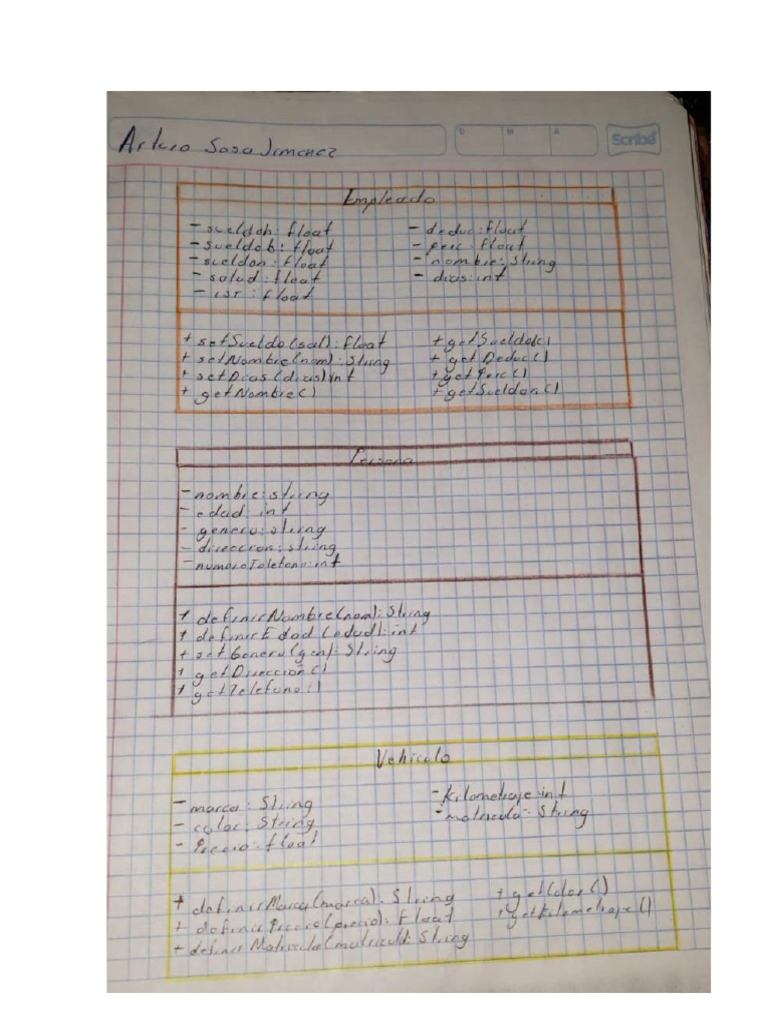 Arturo Sosa Jimenez
D M A
Scribe
Empleado
- sueldoh: float
- sueldob: float
- sueldon: float
- salud: float
- isr: float
- deduc: float
- perc: float
- nombre: String
- dias: int
+ setSueldo(sal): float
+ setNombre(nom): String
+ setDias(dias) int
+ getNombre()
+ getSueldob()
+ getDeduc()
+ getPerc()
+ getSueldon()
Persona
- nombre: string
- edad: int
- genero: string
- direccion: string
- numeroTelefono: int
+ definirNombre(nom): String
+ definirEdad(edad): int
+ setGenero(gen): String
+ getDirección()
+ getTelefono()
Vehiculo
- marca: String
- color: String
- Precio: float
- Kilometraje: int
- matricula: String
+ definirMarca(marca): String
+ definirPrecio(precio): Float
+ definirMatricula(matricul): String
+ getColor()
+ getKilometraje()